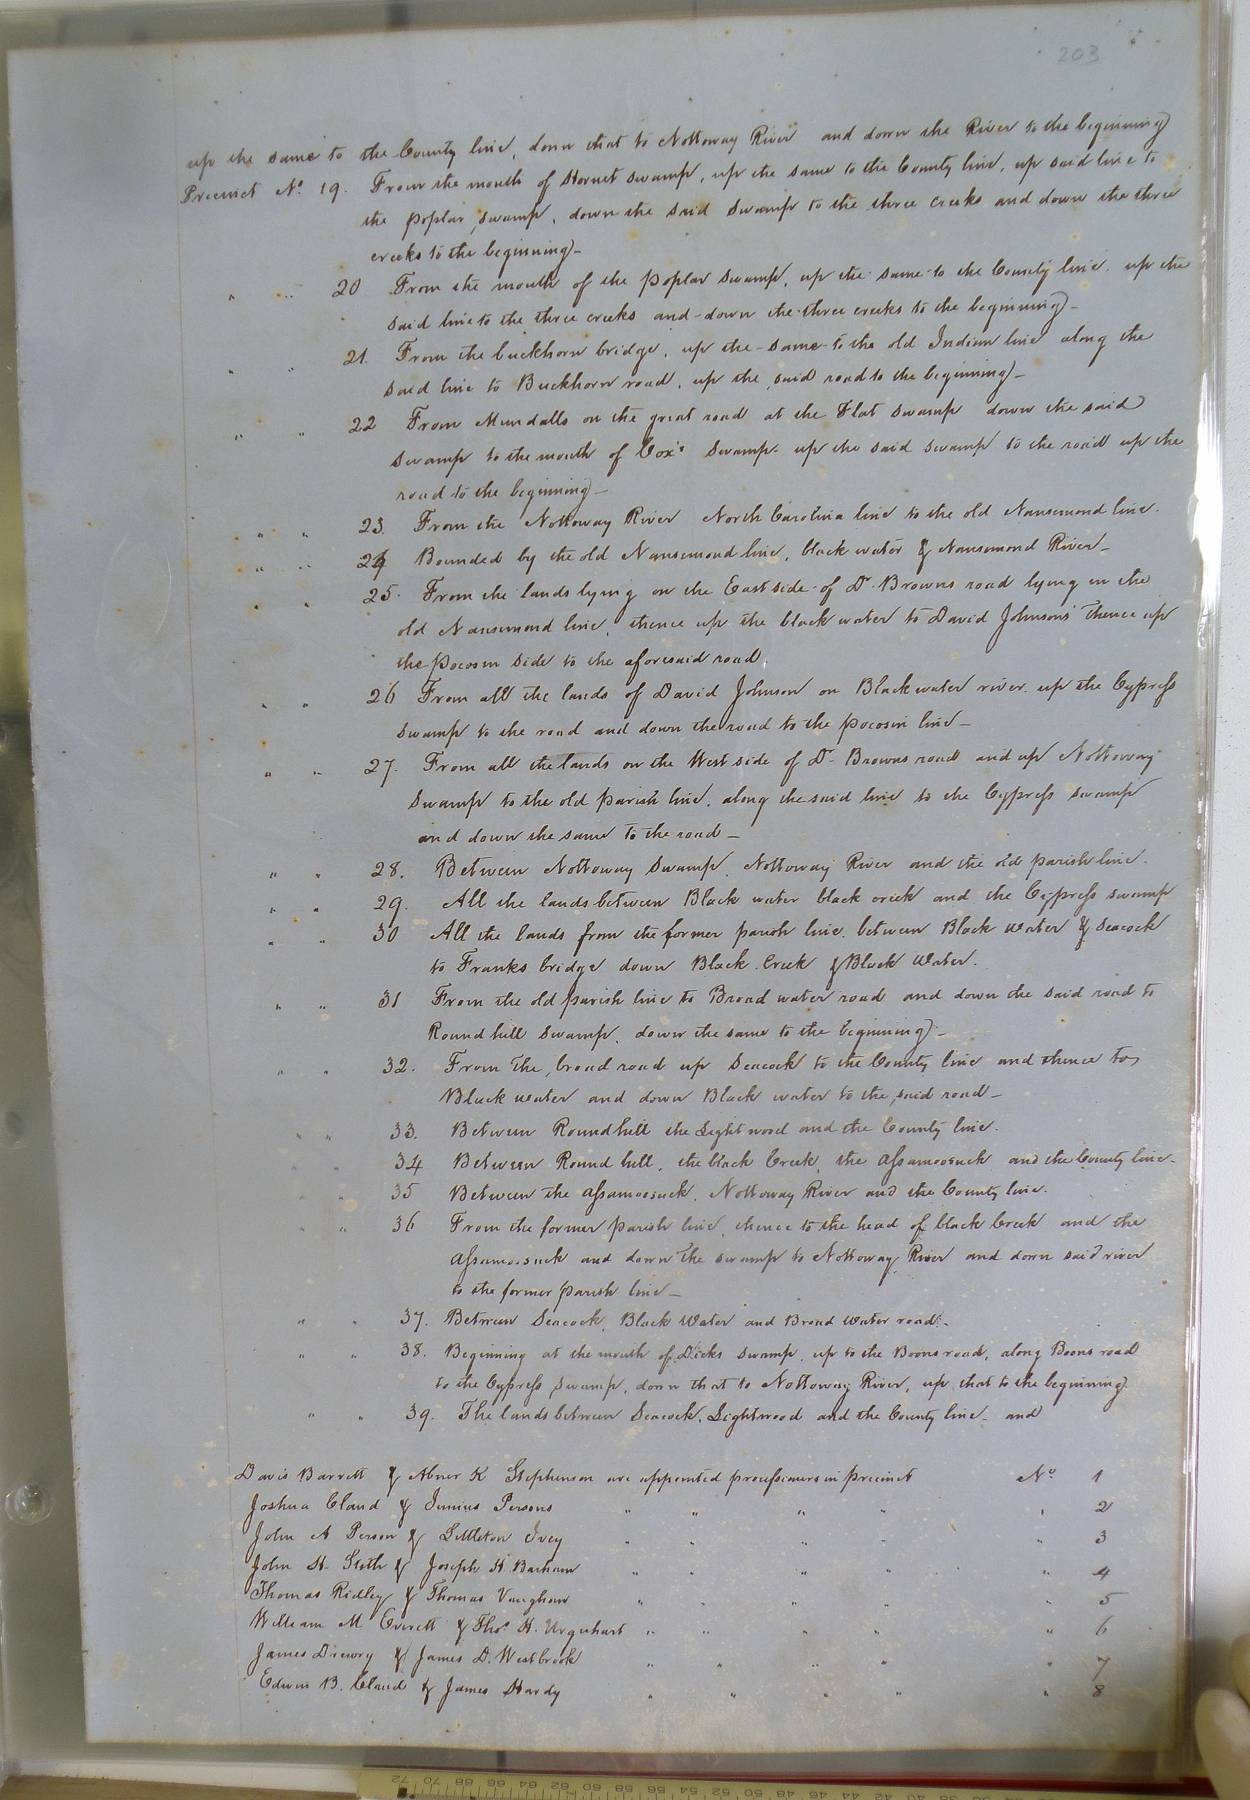 203
up the same to the County line, down that to Nottoway River and down the River to the beginning
Precinct No. 19. From the mouth of Hornet swamp, up the same to the County line, up said line to
the poplar swamp, down the said swamp to the three creeks and down the three
creeks to the beginning –
" " 20 From the mouth of the poplar swamp, up the same to the County line. up the
said line to the three creeks and down the three creeks to the beginning –
" " 21. From the buckhorn bridge, up the same to the old Indian line along the
said line to Buckhorn road, up the said road to the beginning –
" " 22 From Mundalls on the great road at the Flat swamp down the said
swamp to the mouth of Cox's swamp. up the said swamp to the road up the
road to the beginning –
" " 23. From the Nottoway River North Carolina line to the old Nansemond line.
" " 24 Bounded by the old Nansemond line, black water & Nansemond River –
" " 25. From the lands lying on the East side of Dr. Browns road lying in the
old Nansemond line, thence up the black water to David Johnsons' thence up
the pocosin side to the aforesaid road.
" " 26 From all the lands of David Johnson on Blackwater river. up the Cypress
swamp to the road and down the road to the pocosin line –
" " 27. From all the lands on the West side of Dr. Browns road and up Nottoway
swamp to the old parish line, along the said line to the Cypress swamp
and down the same to the road –
" " 28. Between Nottoway swamp, Nottoway River and the old parish line.
" " 29. All the lands between Black water black creek and the Cypress swamp
" " 30 All the lands from the former parish line. between Black water & Seacock
to Franks bridge down Black Creek & Black Water.
" " 31 From the old parish line to Broad water road and down the said road to
Roundhill swamp, down the same to the beginning –
" " 32. From the, broad road up Seacock to the County line and thence to
Black water and down Black water to the said road –
" " 33. Between Roundhill the Lightwood and the County line.
" " 34 Between Round hill, the black Creek, the Assamoosuck and the County line –
" " 35 Between the Assamoosuck, Nottoway River and the County line.
" " 36 From the former parish line, thence to the head of black Creek and the
Assamoosuck and down the swamp to Nottoway River and down said river
to the former parish line –
" " 37. Between Seacock, Black Water and Broad Water road. –
" " 38. Beginning at the mouth of Dicks swamp, up to the Boons road, along Boons road
to the Cypress swamp, down that to Nottoway River, up that to the beginning.
" " 39. The lands between Seacock, Lightwood and the County line – and
Davis Barrett & Abner K Stephenson are appointed processioners in precinct No. 1
Joshua Claud & Junius Persons " " " " " 2
John A Person & Littleton Ivey " " " " " 3
John H. Sloth & Joseph H Barham " " " " " 4
Thomas Ridley & Thomas Vaughan " " " " " 5
William M Everett & Thos. H. Urquhart " " " " " 6
James Drewry & James D. Westbrook " " " " " 7
Edwin B. Claud & James Hardy " " " " " 8
72 70 68 66 64 62 60 58 56 54 52 50 48 46 44 42 40 38 36 34